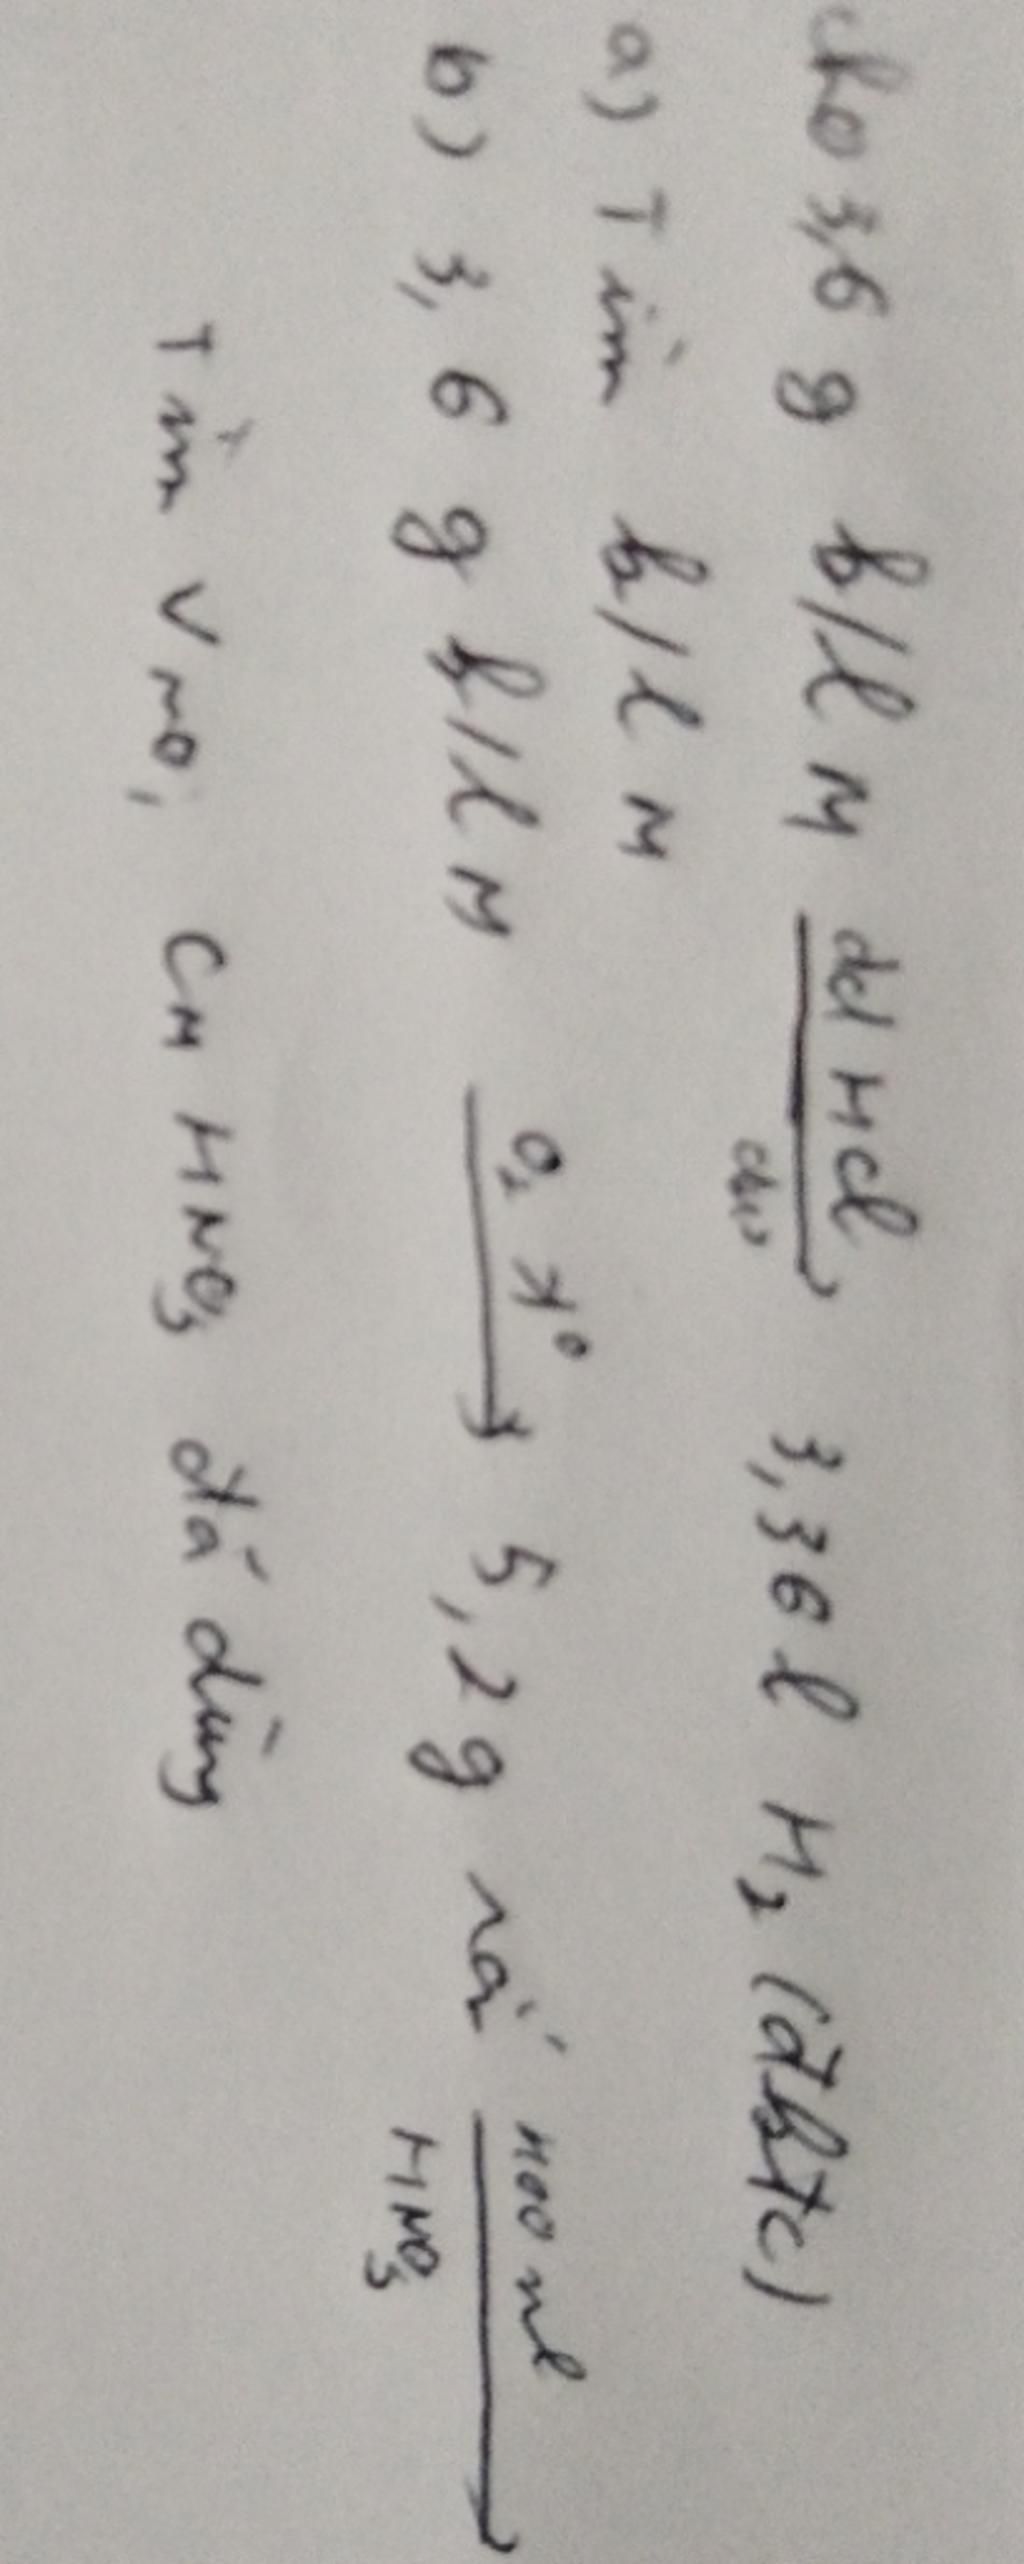 cho 3,6 g k/l M dd HCl dư → 3,36 l H₂ (đktc)
a) Tìm k/l M
b) 3,6 g k/l M O₂ t° → 5,2 g rắn 400 ml HNO₃ →
Tìm V NO, CM HNO₃ đã dùng